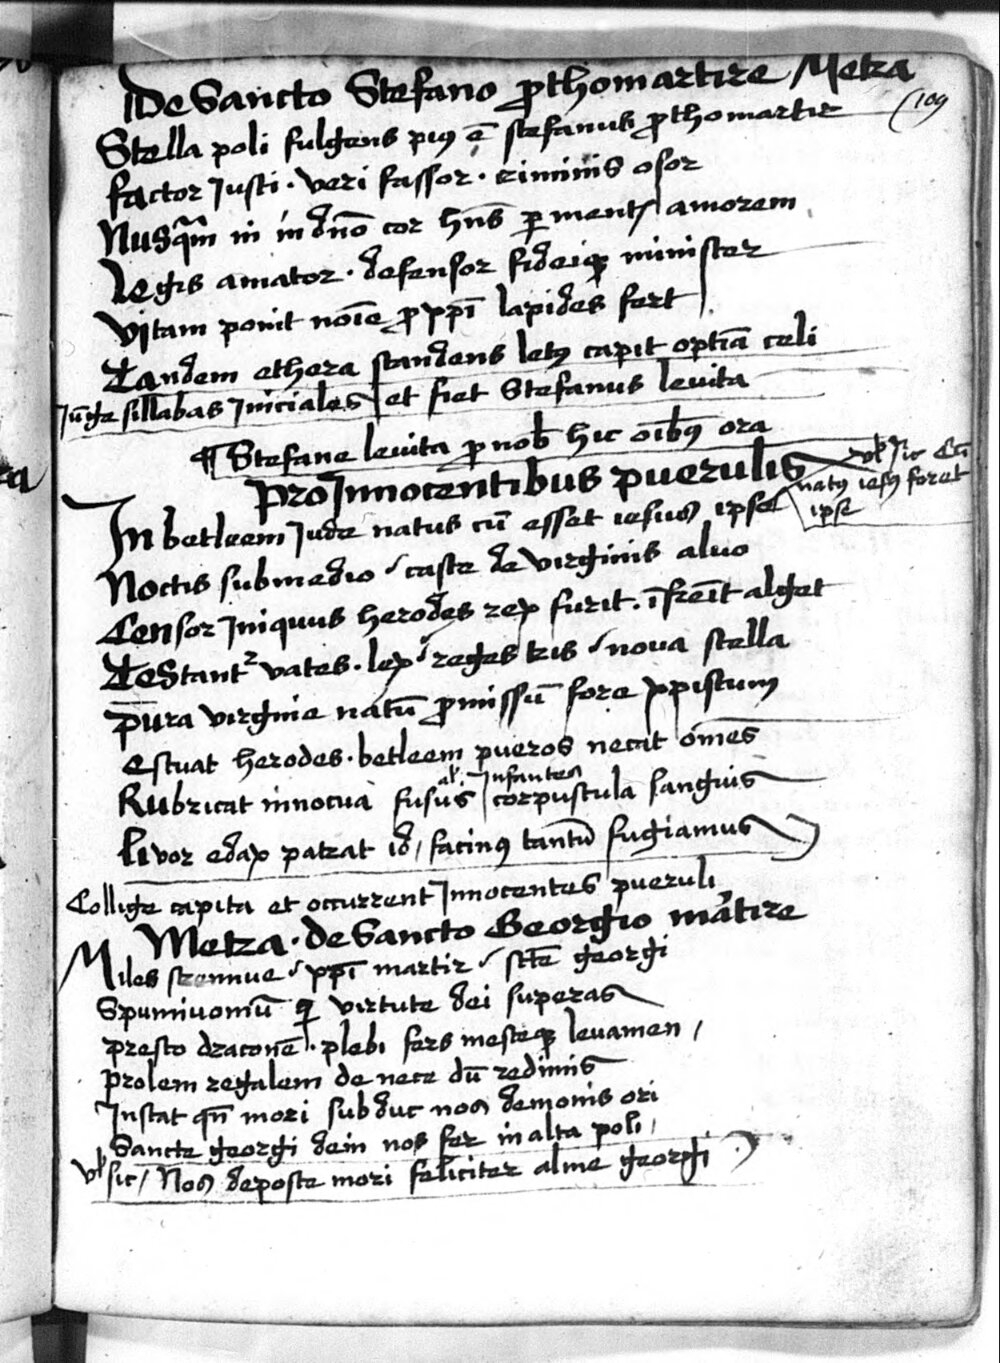 De Sancto Stefano ꝓthomartire Metra
109
Stella poli fulgens piꝰ ē stefanus ꝓthomartir
factor Justi · veri fassor · criminis osor
Nusqᷓm in dn̄o cor hn̄s ꝑ mentꝭ amorem
Legis amator · defensor fideiqꝫ minister
Vitam ponit noīe ꝓ xp̄i lapides fert
Tandem ethera scandens letꝰ capit optīa celi
Jūge sillabas Jniciales et fiet Stefanus leuita
¶ Stefane leuita ꝓ nob̄ hic oībꝰ ora
Pro Jnnocentibus puerulis
vl̄ sic Cū
natꝰ iesꝰ foret
ipse
In betleem Jude natus cū esset iesus ipse
Noctis submedio / caste de virginis aluo
Censor Jniquus herodes rex furit · īfreīt alget
Testantᷣ vates · lex / reges tris / noua stella
Pura virgine natū ꝓmissū fore xpistum
Estuat herodes · betleem pueros necat omēs
al' Jnfantes
Rubricat innocua fusus corpuscula sanguis
Livor edax patrat id / facinꝰ tantū fugiamus
Collige capita et occurrent Jnnocentes pueruli
Metra · de Sancto Georgio mārtire
Miles strennue / xp̄i martir / sct̄e georgi
Spumiuomū qi virtute dei superas
presto draconē · plebi fers mesteqꝫ leuamen /
prolem regalem de nece dū redimis
Instat qn̄ mori subduc nos demonis ori
Sancte georgi dein nos fer in alta poli /
vl̄ sic / Nos deposte mori feliciter alme georgi